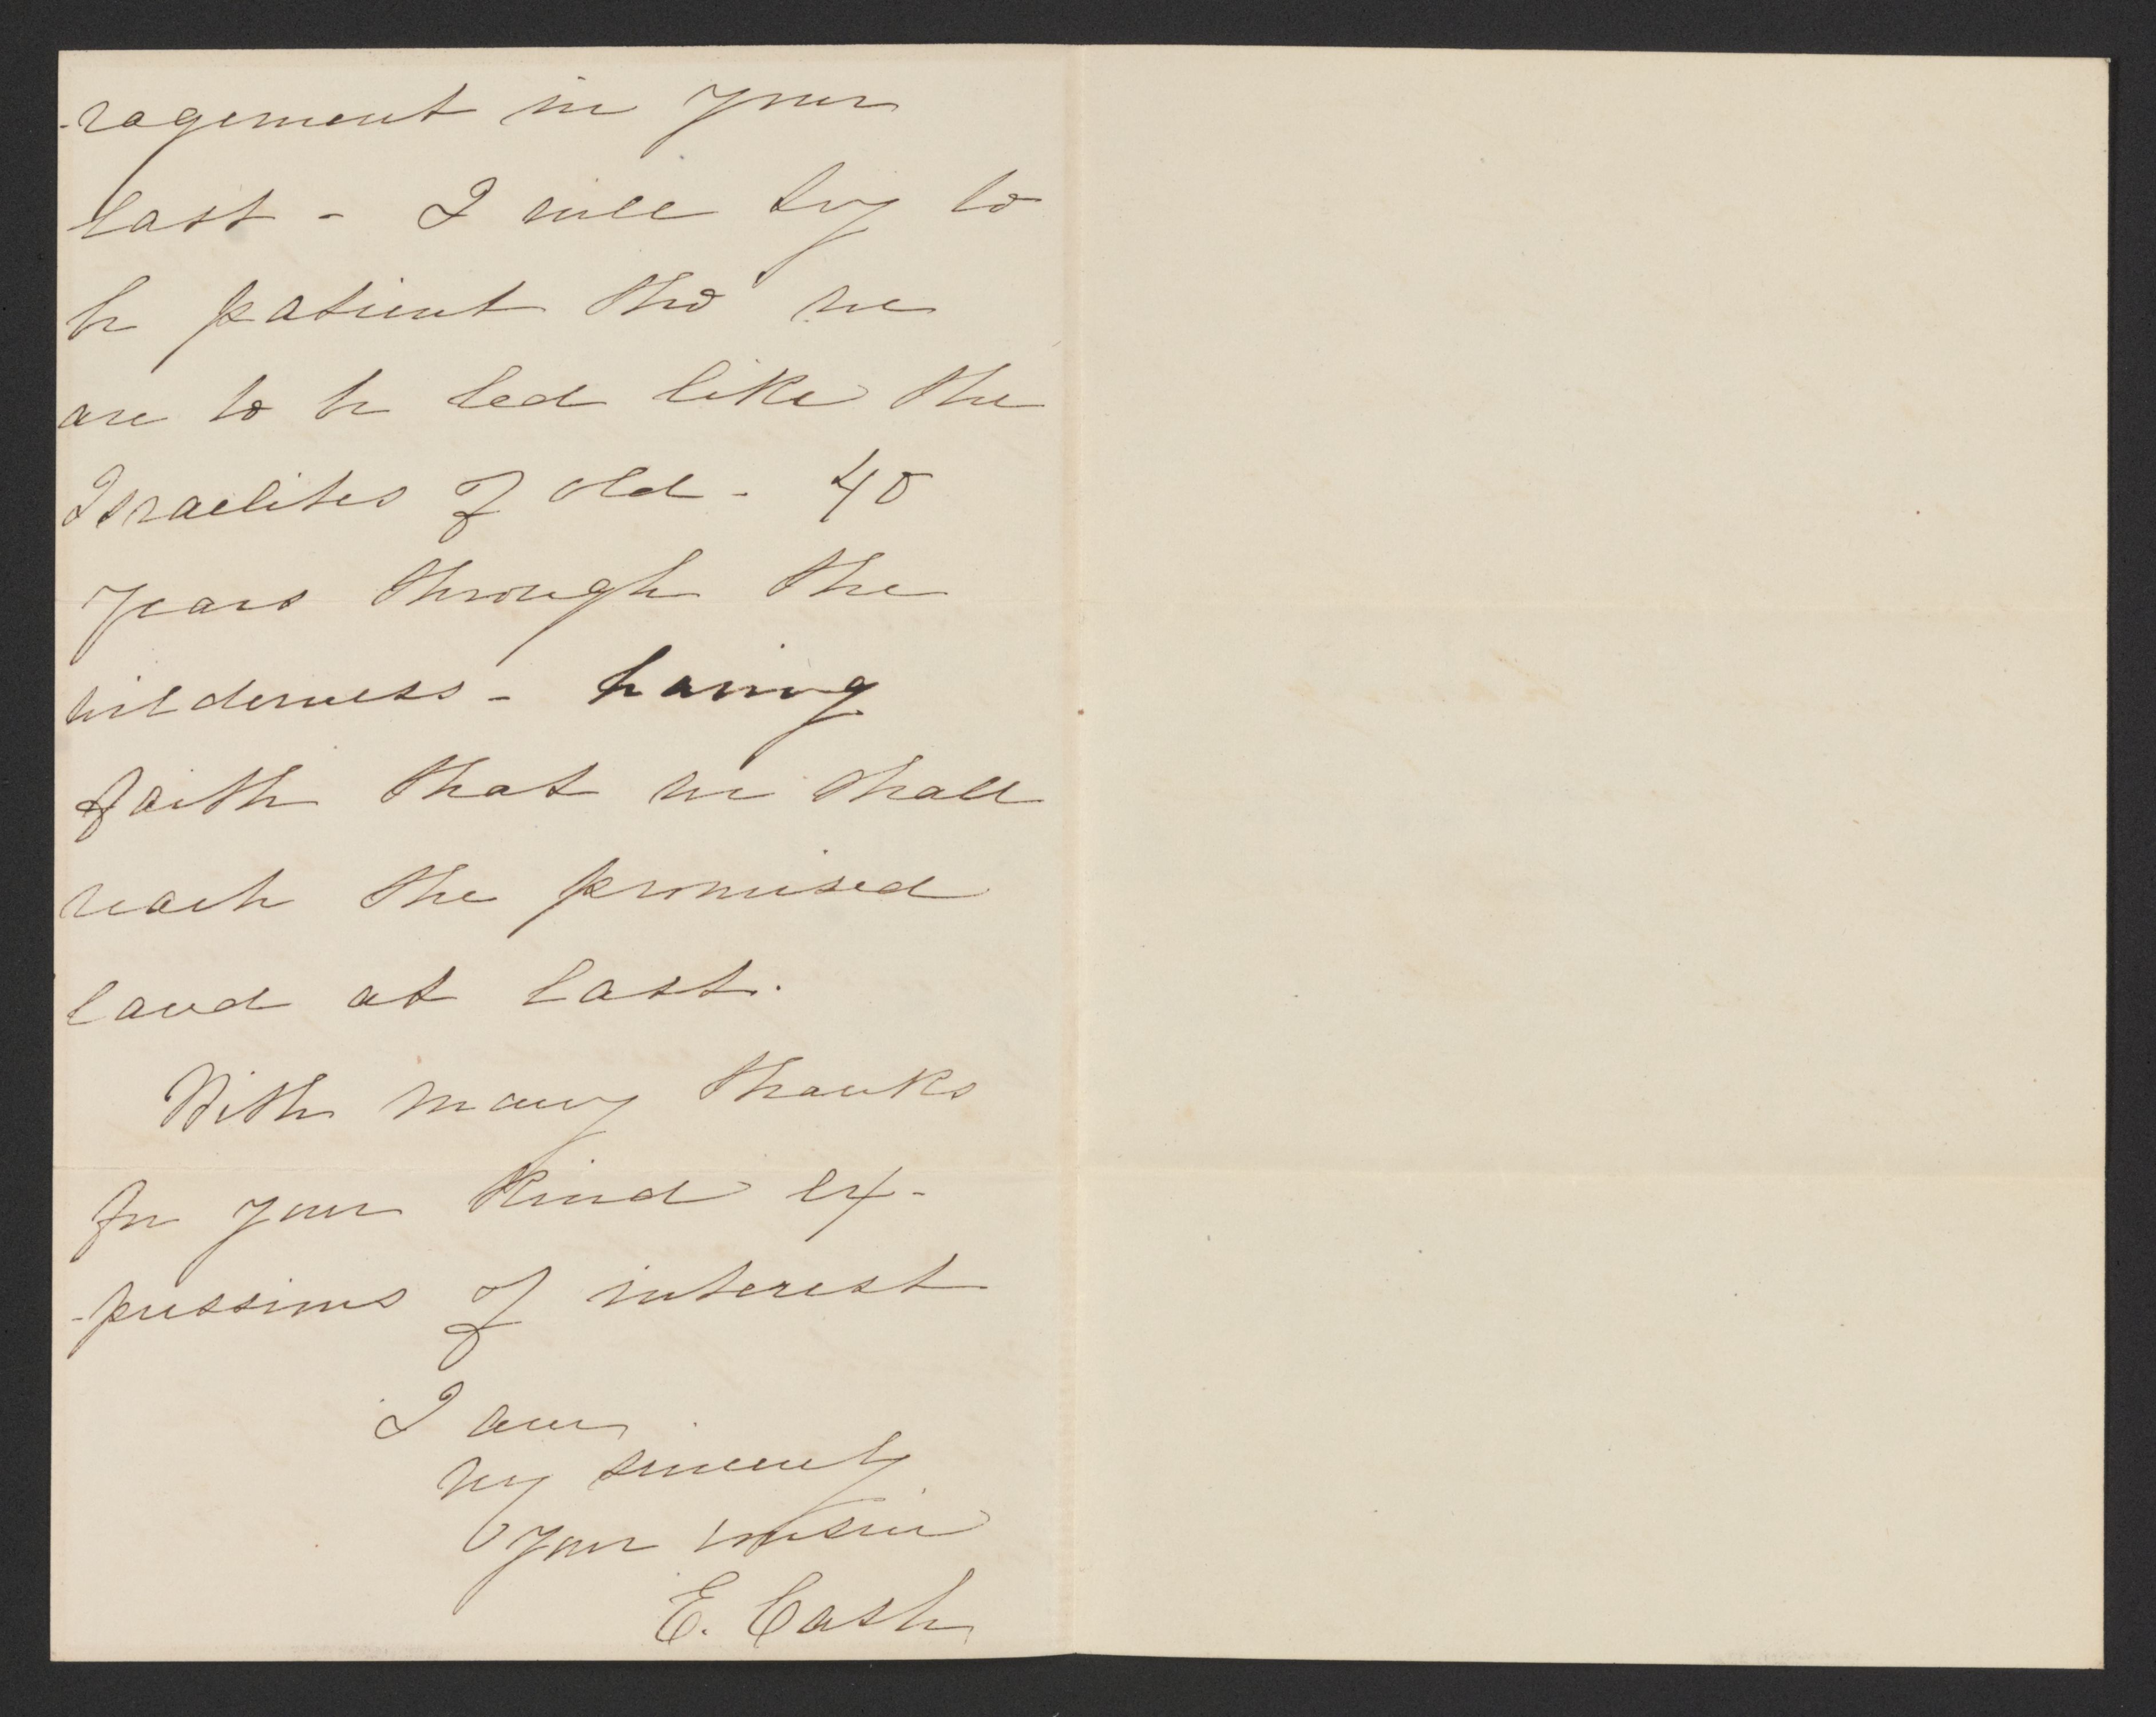 -ragement in your
last - I will try to
be patient tho' we
are to be led like the
Israelites of old - 40
years through the
wilderness - having
faith that we shall
reach the promised
land at last.
With many thanks
for your kind ex-
-pressions of interest
I am
very sincerely
your cousin
E. Cash